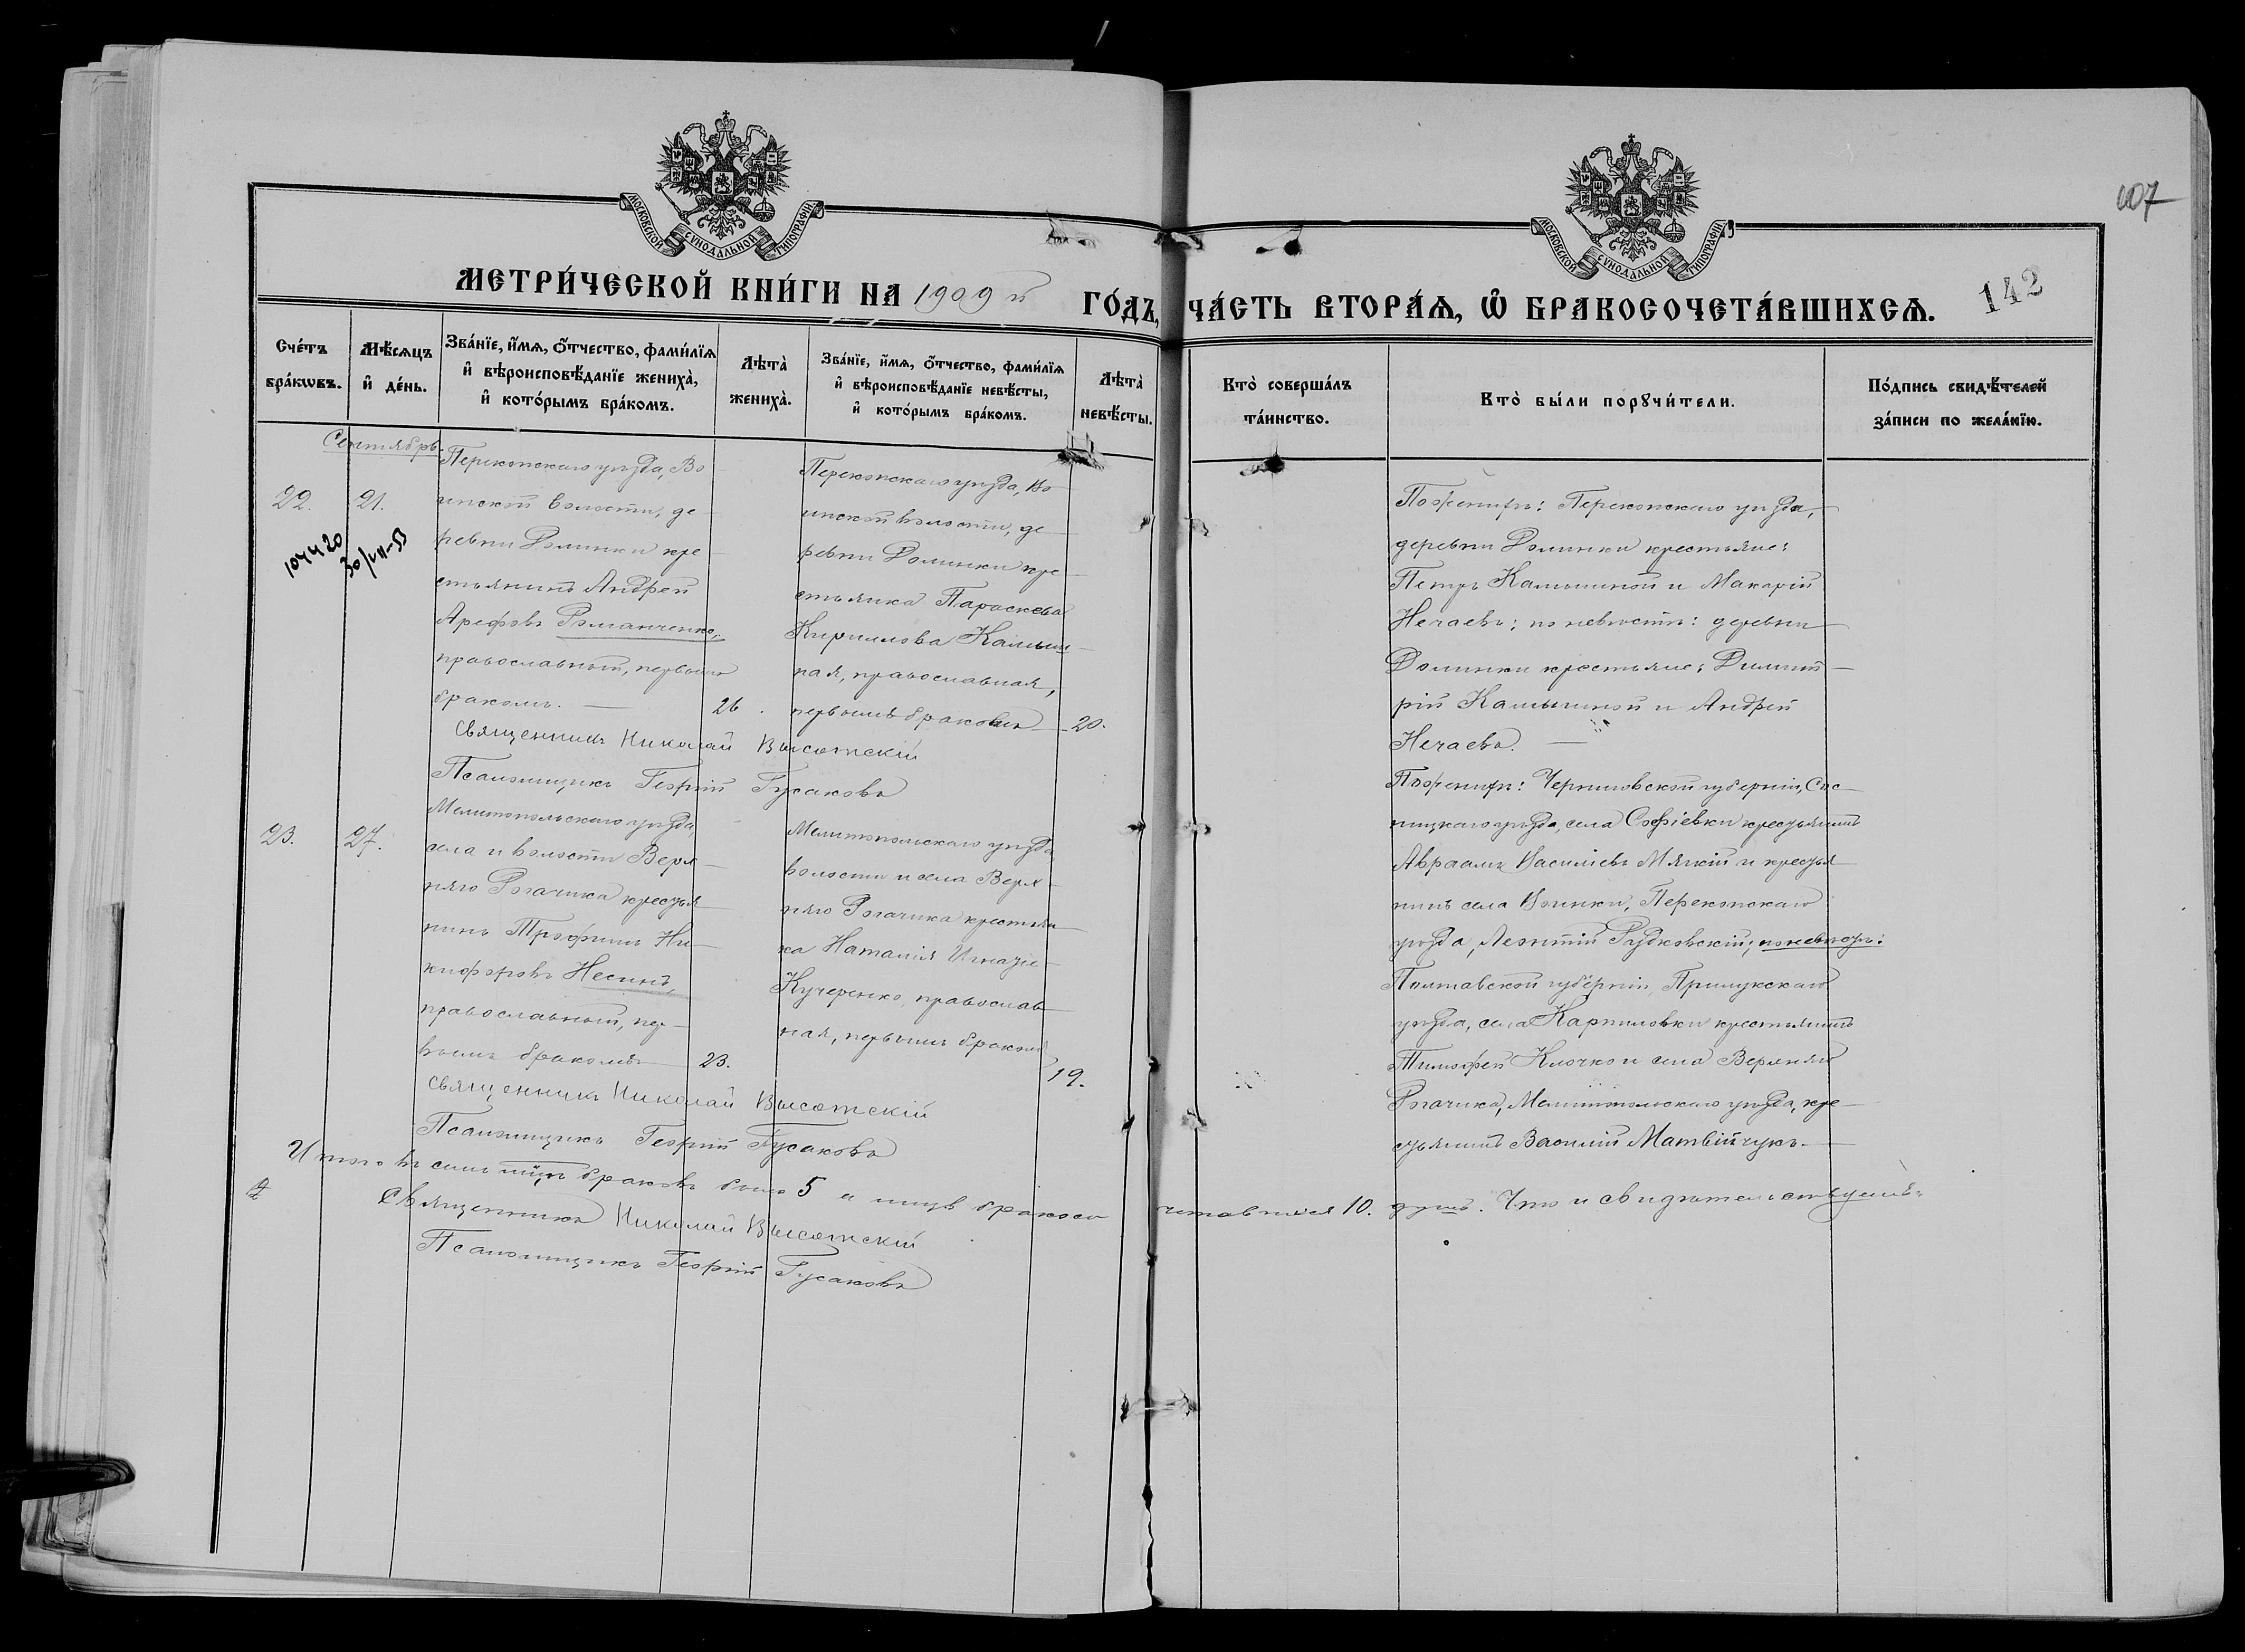 107
МОСКОВСКОЙ СУНОДАЛЬНОЙ ТИПОГРАФІИ
МОСКОВСКОЙ СУНОДАЛЬНОЙ ТИПОГРАФІИ
МЕТРИ́ЧЕСКОЙ КНИ́ГИ НА 1909 й ГО́ДЪ,
ЧА́СТЬ ВТОРА́Ѧ, Ѽ БРАКОСОЧЕТА́ВШИХСѦ.
142
Сче́тъ
бра́кѡвъ.
Мѣ́сѧцъ
и҆ де́нь.
Зва́нїе, и҆́мѧ, ѻ҆́тчество, фами́лїѧ
и҆ вѣроисповѣ́данїе жениха̀,
и҆ кото́рымъ бра́комъ.
Лѣта̀
жениха̀.
Зва́нїе, и҆́мѧ, ѻ҆́тчество, фами́лїѧ
и҆ вѣроисповѣ́данїе невѣ́сты,
и҆ кото́рымъ бра́комъ.
Лѣта̀
невѣ́сты.
Кто̀ соверша́лъ
та́инство.
Кто̀ бы́ли порꙋчи́тели.
По́дпись свидѣ́телей
за́писи по жела́нїю.
Сентябрь.
22.
21.
10420
30/VII-53
Перекопскаго уѣзда, Во
инской волости, де
ревни Долинки кре
стьянинъ Андрей
Арефовъ Романченко,
православный, первымъ
бракомъ.
26.
Перекопскаго уѣзда, Во
инской волости, де
ревни Долинки кре
стьянка Параскева
Кириллова Камыш
ная, православная,
первымъ бракомъ
20.
Священникъ Николай Высотскій
Псаломщикъ Георгій Гусаковъ
По женихѣ: Перекопскаго уѣзда,
деревни Долинки крестьяне:
Петръ Камышной и Макарій
Нечаевъ; по невѣстѣ: деревни
Долинки крестьяне: Димит
рій Камышной и Андрей
Нечаевъ.
23.
27.
Мелитопольскаго уѣзда
села и волости Верх
няго Рогачика крестья
нинъ Трофимъ Ни
кифоровъ Несинъ,
православный, пер
вымъ бракомъ
23.
Мелитопольскаго уѣзда
волости и села Верх
няго Рогачика крестьян
ка Наталія Игнатіе
Кучеренко, православ
ная, первымъ бракомъ
19.
Священникъ Николай Высотскій
Псаломщикъ Георгій Гусаковъ
По женихѣ: Черниговской губерніи, Сос
ницкаго уѣзда, села Софіевки крестьянинъ
Авраамъ Василіевъ Мягкій и крестья
нинъ села Воинки, Перекопскаго
уѣзда, Леонтій Рудковскій; по невѣстѣ:
Полтавской губерніи, Прилукскаго
уѣзда, села Карпиловки крестьянинъ
Тимофей Клочко и села Верхняго
Рогачика, Мелитопольскаго уѣзда, кре
стьянинъ Василій Матвійчукъ.
Итого въ семъ мѣсяцѣ браковъ было 5 и лицъ бракосо четавшихся 10. душъ. Что и свидѣтельствуемъ:
Священникъ Николай Высотскій
Псаломщикъ Георгій Гусаковъ